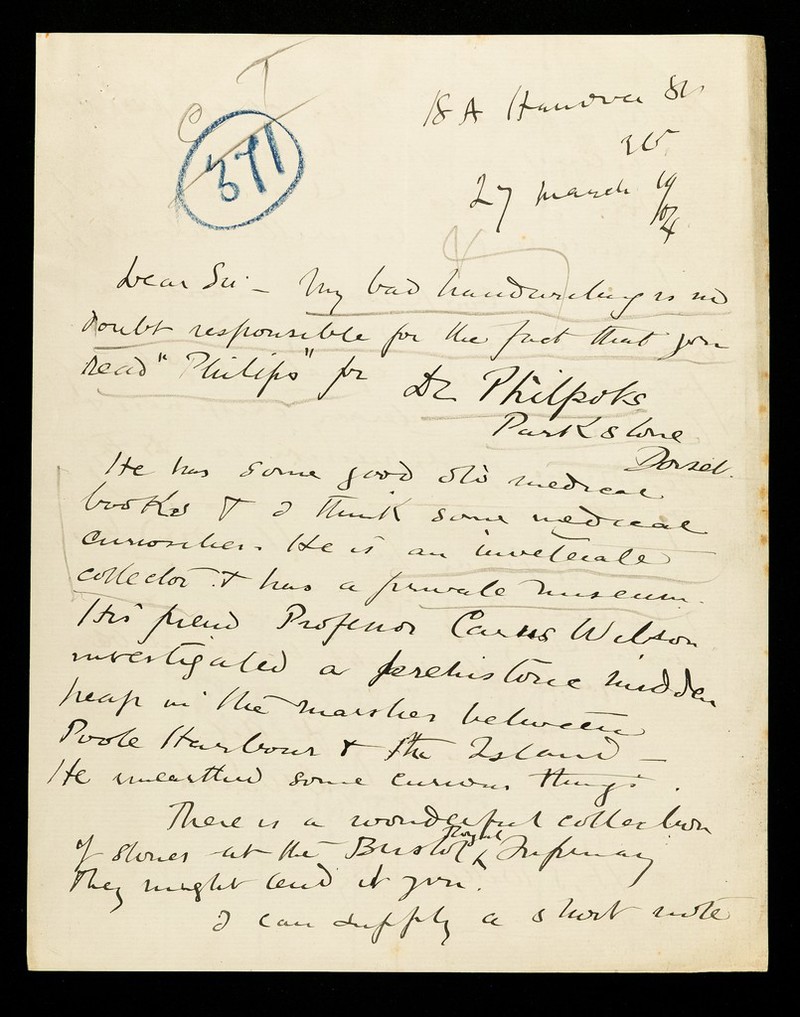 C T
371
18A Hanover Sq
27 March 19
Dear Sir - My bad handwriting is no
doubt responsible for the fact that you
read "Philips" for Dr Philpots
Parkstone
Dorset.
He has some good old medical
books & I think some medical
curiosities. He is an inveterate
collector & has a private museum.
His friend Professor Carus Wilson
investigated a prehistoric midden
heap in the marshes between
Poole Harbour & the Island -
He unearthed some curious things.
There is a wonderful collection
of stones at the Bristol Royal Infirmary
They might lend it you.
I can supply a short note